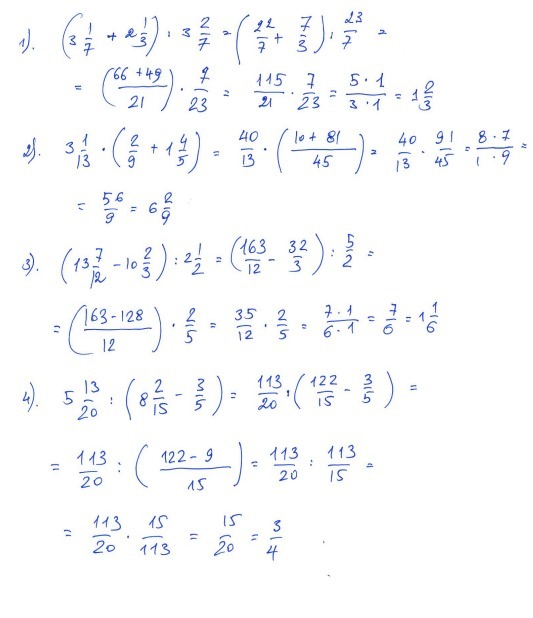 1). (3 1/7 + 2 1/3) : 3 2/7 = (22/7 + 7/3) : 23/7 =
= ((66+49)/21) · 7/23 = 115/21 · 7/23 = (5·1)/(3·1) = 1 2/3
2). 3 1/13 · (2/9 + 1 4/5) = 40/13 · ((10+81)/45) = 40/13 · 91/45 = (8·7)/(1·9) =
= 56/9 = 6 2/9
3). (13 7/12 - 10 2/3) : 2 1/2 = (163/12 - 32/3) : 5/2 =
= ((163-128)/12) · 2/5 = 35/12 · 2/5 = (7·1)/(6·1) = 7/6 = 1 1/6
4). 5 13/20 : (8 2/15 - 3/5) = 113/20 : (122/15 - 3/5) =
= 113/20 : ((122-9)/15) = 113/20 : 113/15 =
= 113/20 · 15/113 = 15/20 = 3/4